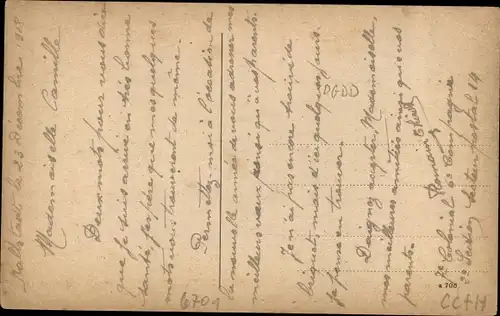 Mallstadt le 23 Décembre 1918
Mademoiselle Camille
Deux mots pour vous dire
que je suis arrivé en très bonne
santé, j'espère que mes quelques
mots vous trouveront de même.
Permettez moi à l'occasion de
la nouvelle année de vous adresser mes
meilleurs vœux ainsi qu'à vos parents.
J'en ai pas encore trouvé de
briquet, mais d'ici quelques jours
je pense en trouver.
Daignez accepter, Mademoiselle,
mes meilleures amitiés ainsi qu'à vos
parents.
Romain
7e Colonial 6e Compagnie
2e Section Secteur postal 14
DGDD
6701
a 708
CCFH